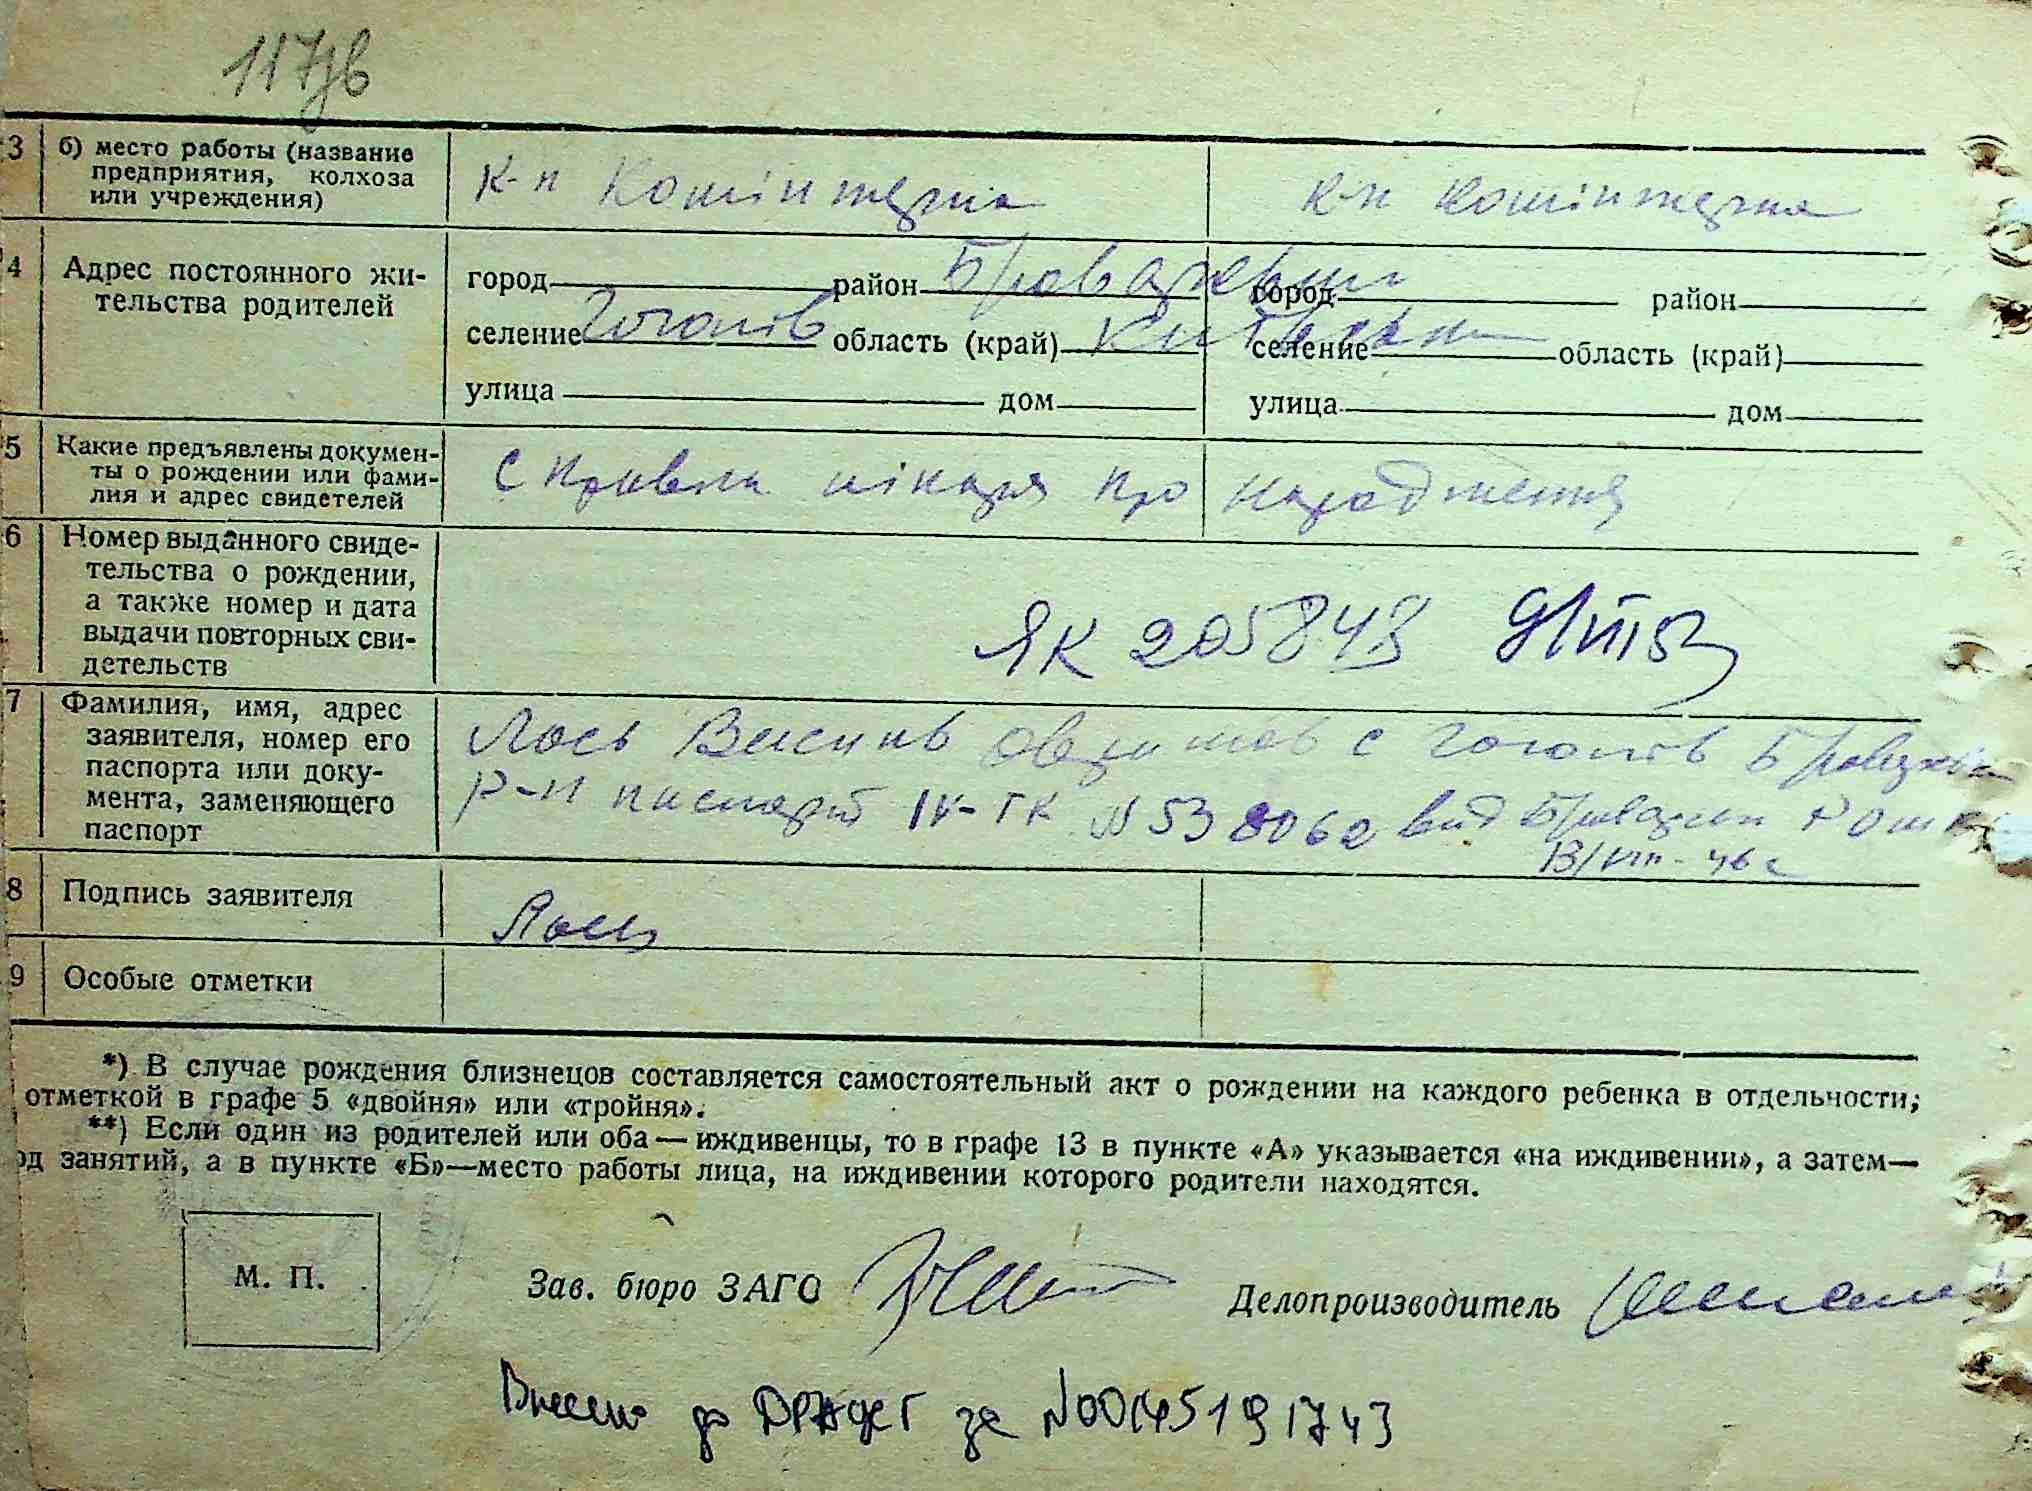 117зв
3 б) место работы (название
предприятия, колхоза
или учреждения)
К-п Комінтерна к-п Комінтерна
4 Адрес постоянного жи-
тельства родителей
город район Броварський город район
селение Гоголів область (край) Київська селение область (край)
улица дом улица дом
5 Какие предъявлены докумен-
ты о рождении или фами-
лия и адрес свидетелей
Справка лікаря про народження
6 Номер выданного свиде-
тельства о рождении,
а также номер и дата
выдачи повторных сви-
детельств
ЯК 205843
7 Фамилия, имя, адрес
заявителя, номер его
паспорта или доку-
мента, заменяющего
паспорт
Лось Василь с Гоголів Броварськ
р-н паспорт №538062 вид Броварськ
13/VIII-46 г
8 Подпись заявителя
Лось
9 Особые отметки
*) В случае рождения близнецов составляется самостоятельный акт о рождении на каждого ребенка в отдельности;
отметкой в графе 5 «двойня» или «тройня».
**) Если один из родителей или оба — иждивенцы, то в графе 13 в пункте «А» указывается «на иждивении», а затем—
од занятий, а в пункте «Б»—место работы лица, на иждивении которого родители находятся.
М. П.
Зав. бюро ЗАГС
Делопроизводитель
Внесено до ДРАЦСГ за №00145191743